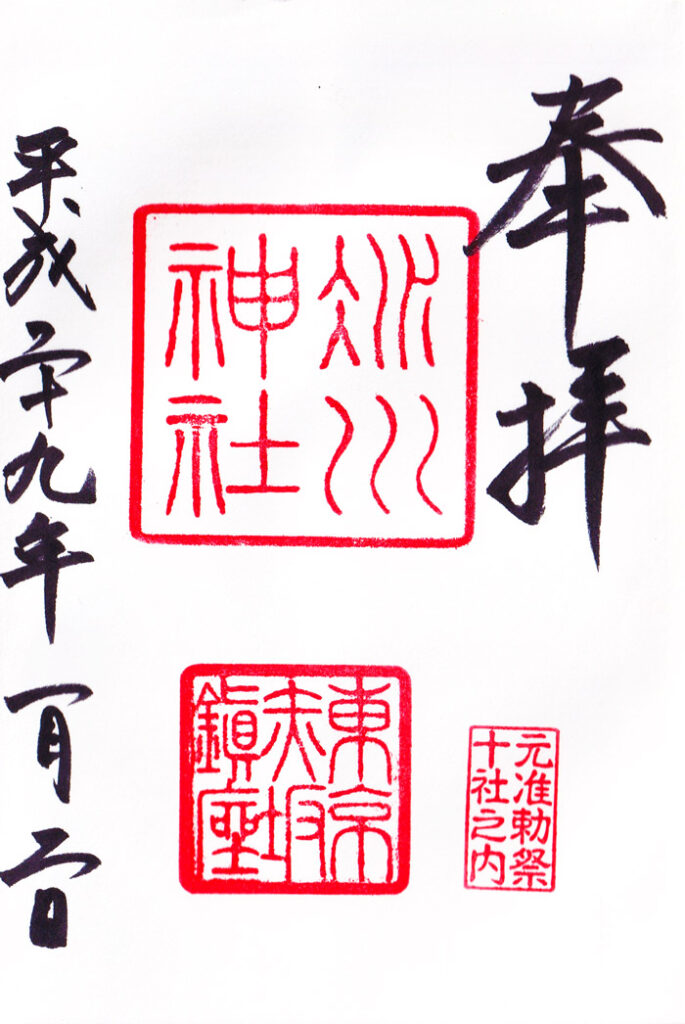 奉拝
元准勅祭
十社之内
冰川
神社
東京
赤坂
鎭座
平成二十九年一月二日